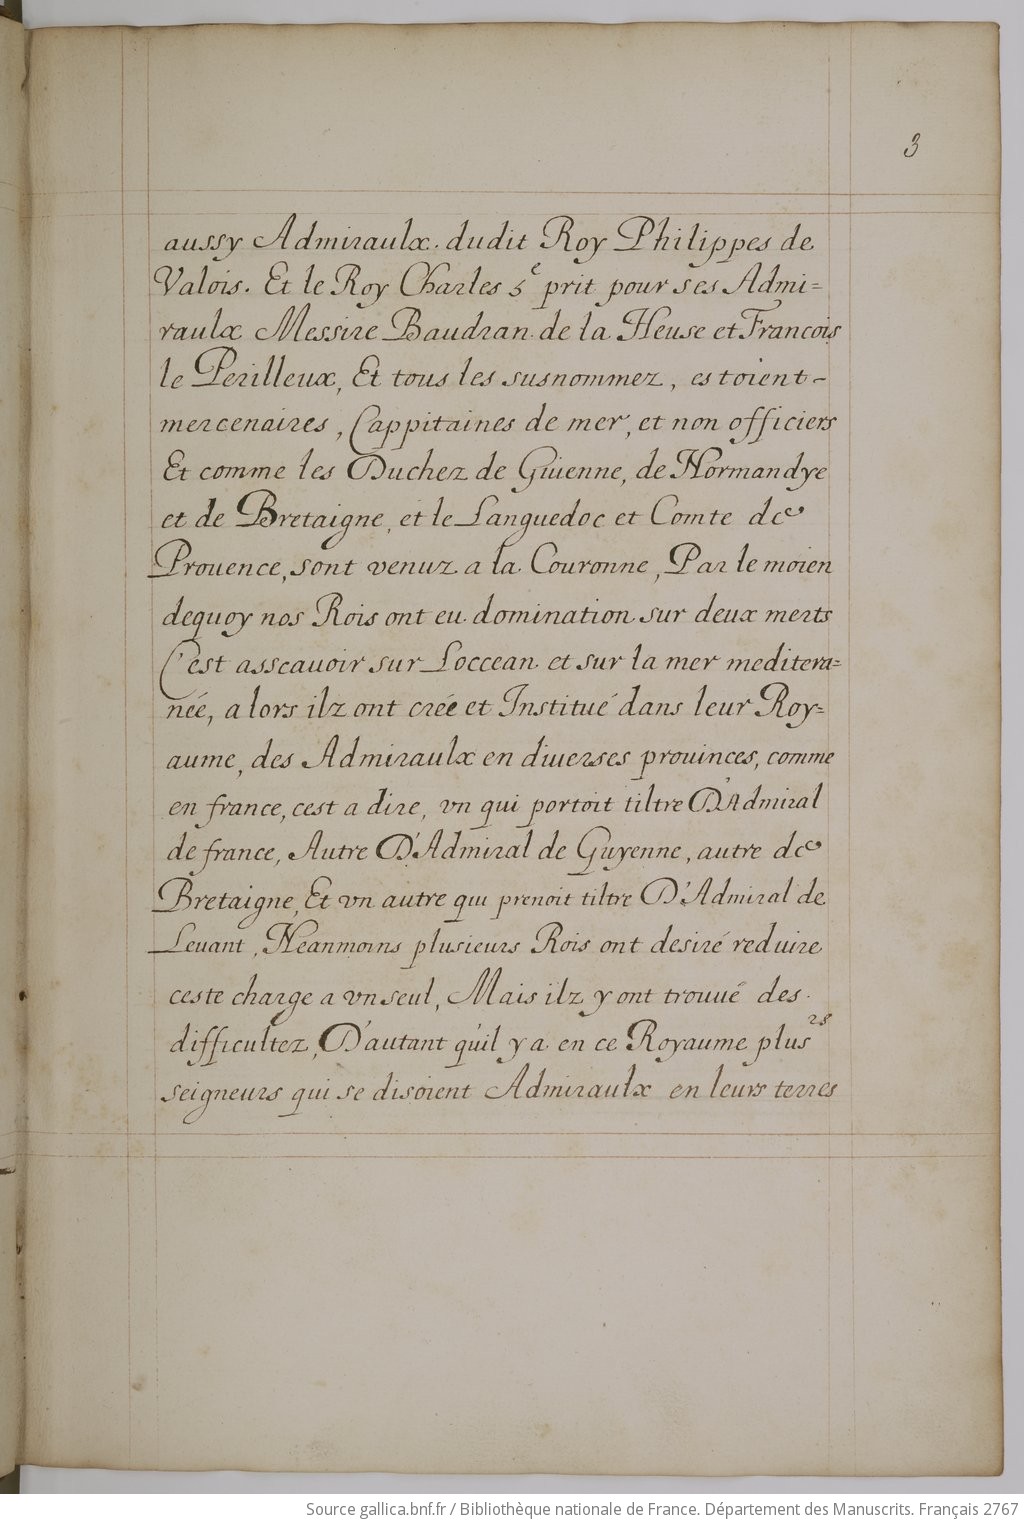 3
aussy Admiraulx. dudit Roy Philippes de
Valois. Et le Roy Charles 5e prit pour ses Admi=
raulx Messire Baudran. de la Heuse et Francois
le Perilleux, Et tous les susnommez, estoient-
mercenaires, Cappitaines de mer, et non officiers
Et comme les Duchez de Guienne, de Normandye
et de Bretaigne, et le Languedoc et Comte de
Prouence, sont venuz a la Couronne, Par le moien
dequoy nos Rois ont eu domination sur deux merts
C'est asscauoir sur Loccean et sur la mer meditera=
née, alors ilz ont crée et Institué dans leur Roy=
aume, des Admiraulx en diuerses prouinces, comme
en france, cest a dire, vn qui portoit tiltre D'Admiral
de france, Autre D'Admiral de Guyenne, autre de
Bretaigne, Et vn autre qui prenoit tiltre D'Admiral de
Leuant, Neanmoins plusieurs Rois ont desiré reduire
ceste charge a vn seul, Mais ilz y ont trouué des.
difficultez, D'autant qu'il y a en ce Royaume plusrs
seigneurs qui se disoient Admiraulx en leurs terres
Source gallica.bnf.fr / Bibliothèque nationale de France. Département des Manuscrits. Français 2767